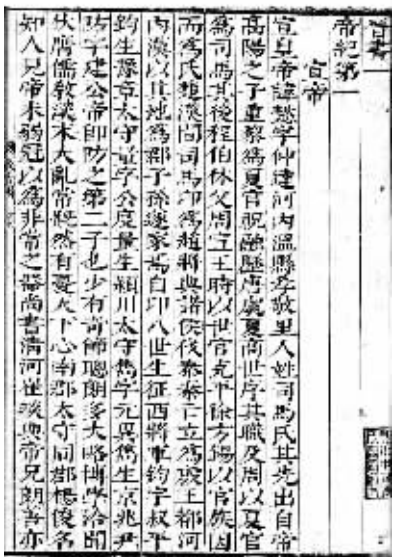 晉書一
帝紀第一
宣帝
宣皇帝諱懿字仲達河內溫縣孝敬里人姓司馬氏其先出自帝
高陽之子重黎爲夏官祝融歷唐虞夏商世序其職及周以夏官
爲司馬其後程伯休父周宣王時以世官克平徐方錫以官族因
而爲氏楚漢間司馬卬爲趙將與諸侯伐秦秦亡立爲殷王都河
內漢以其地爲郡子孫遂家焉自卬八世生征西將軍鈞字叔平
鈞生豫章太守量字公度量生潁川太守儁字元異儁生京兆尹
防字建公帝即防之第二子也少有奇節聰朗多大略博學洽聞
伏膺儒教漢末大亂常慨然有憂天下心南郡太守同郡楊俊名
知人見帝未弱冠以爲非常之器尚書清河崔琰與帝兄朗善亦